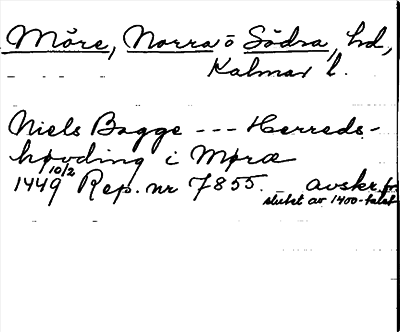 Möre, Norra o Södra, hd,
Kalmar l.
Niels Bagge --- Herreds-
høvding i Møræ
1449 10/2 Rep. nr 7855. _ avskr. fr.
slutet av 1400-talet